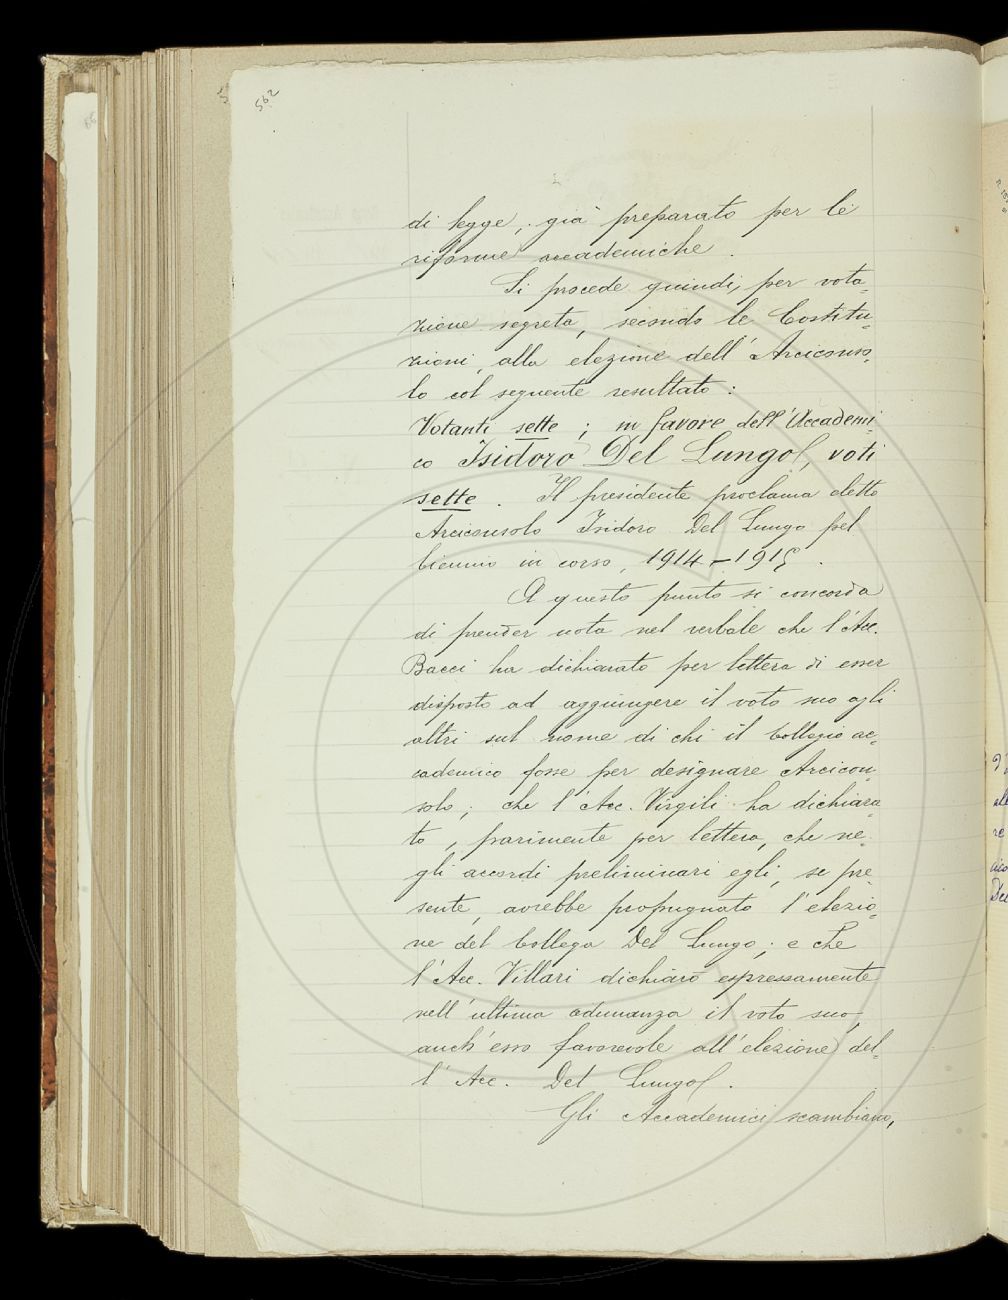 562
di legge, già preparato per le
riforme accademiche.
Si procede quindi, per vota-
zione segreta, secondo le Costitu-
zioni, alla elezione dell'Arciconso-
lo col seguente resultato:
Votanti sette; in favore dell'Accademi-
co Isidoro Del Lungo, voti
sette. Il presidente proclama eletto
Arciconsolo Isidoro Del Lungo pel
biennio in corso, 1914-1915.
A questo punto si concorda
di prender nota nel verbale che l'Acc.
Bacci ha dichiarato per lettera di esser
disposto ad aggiungere il voto suo agli
altri sul nome di chi il Collegio ac-
cademico fosse per designare Arcicon-
solo; che l'Acc. Virgili ha dichiara-
to, parimente per lettera, che ne-
gli accordi preliminari egli, se pre-
sente, avrebbe propugnato l'elezio-
ne del Collega Del Lungo; e che
l'Acc. Villari dichiarò espressamente
nell'ultima adunanza il voto suo,
anch'esso favorevole all'elezione del-
l'Acc. Del Lungo.
Gli Accademici scambiano,